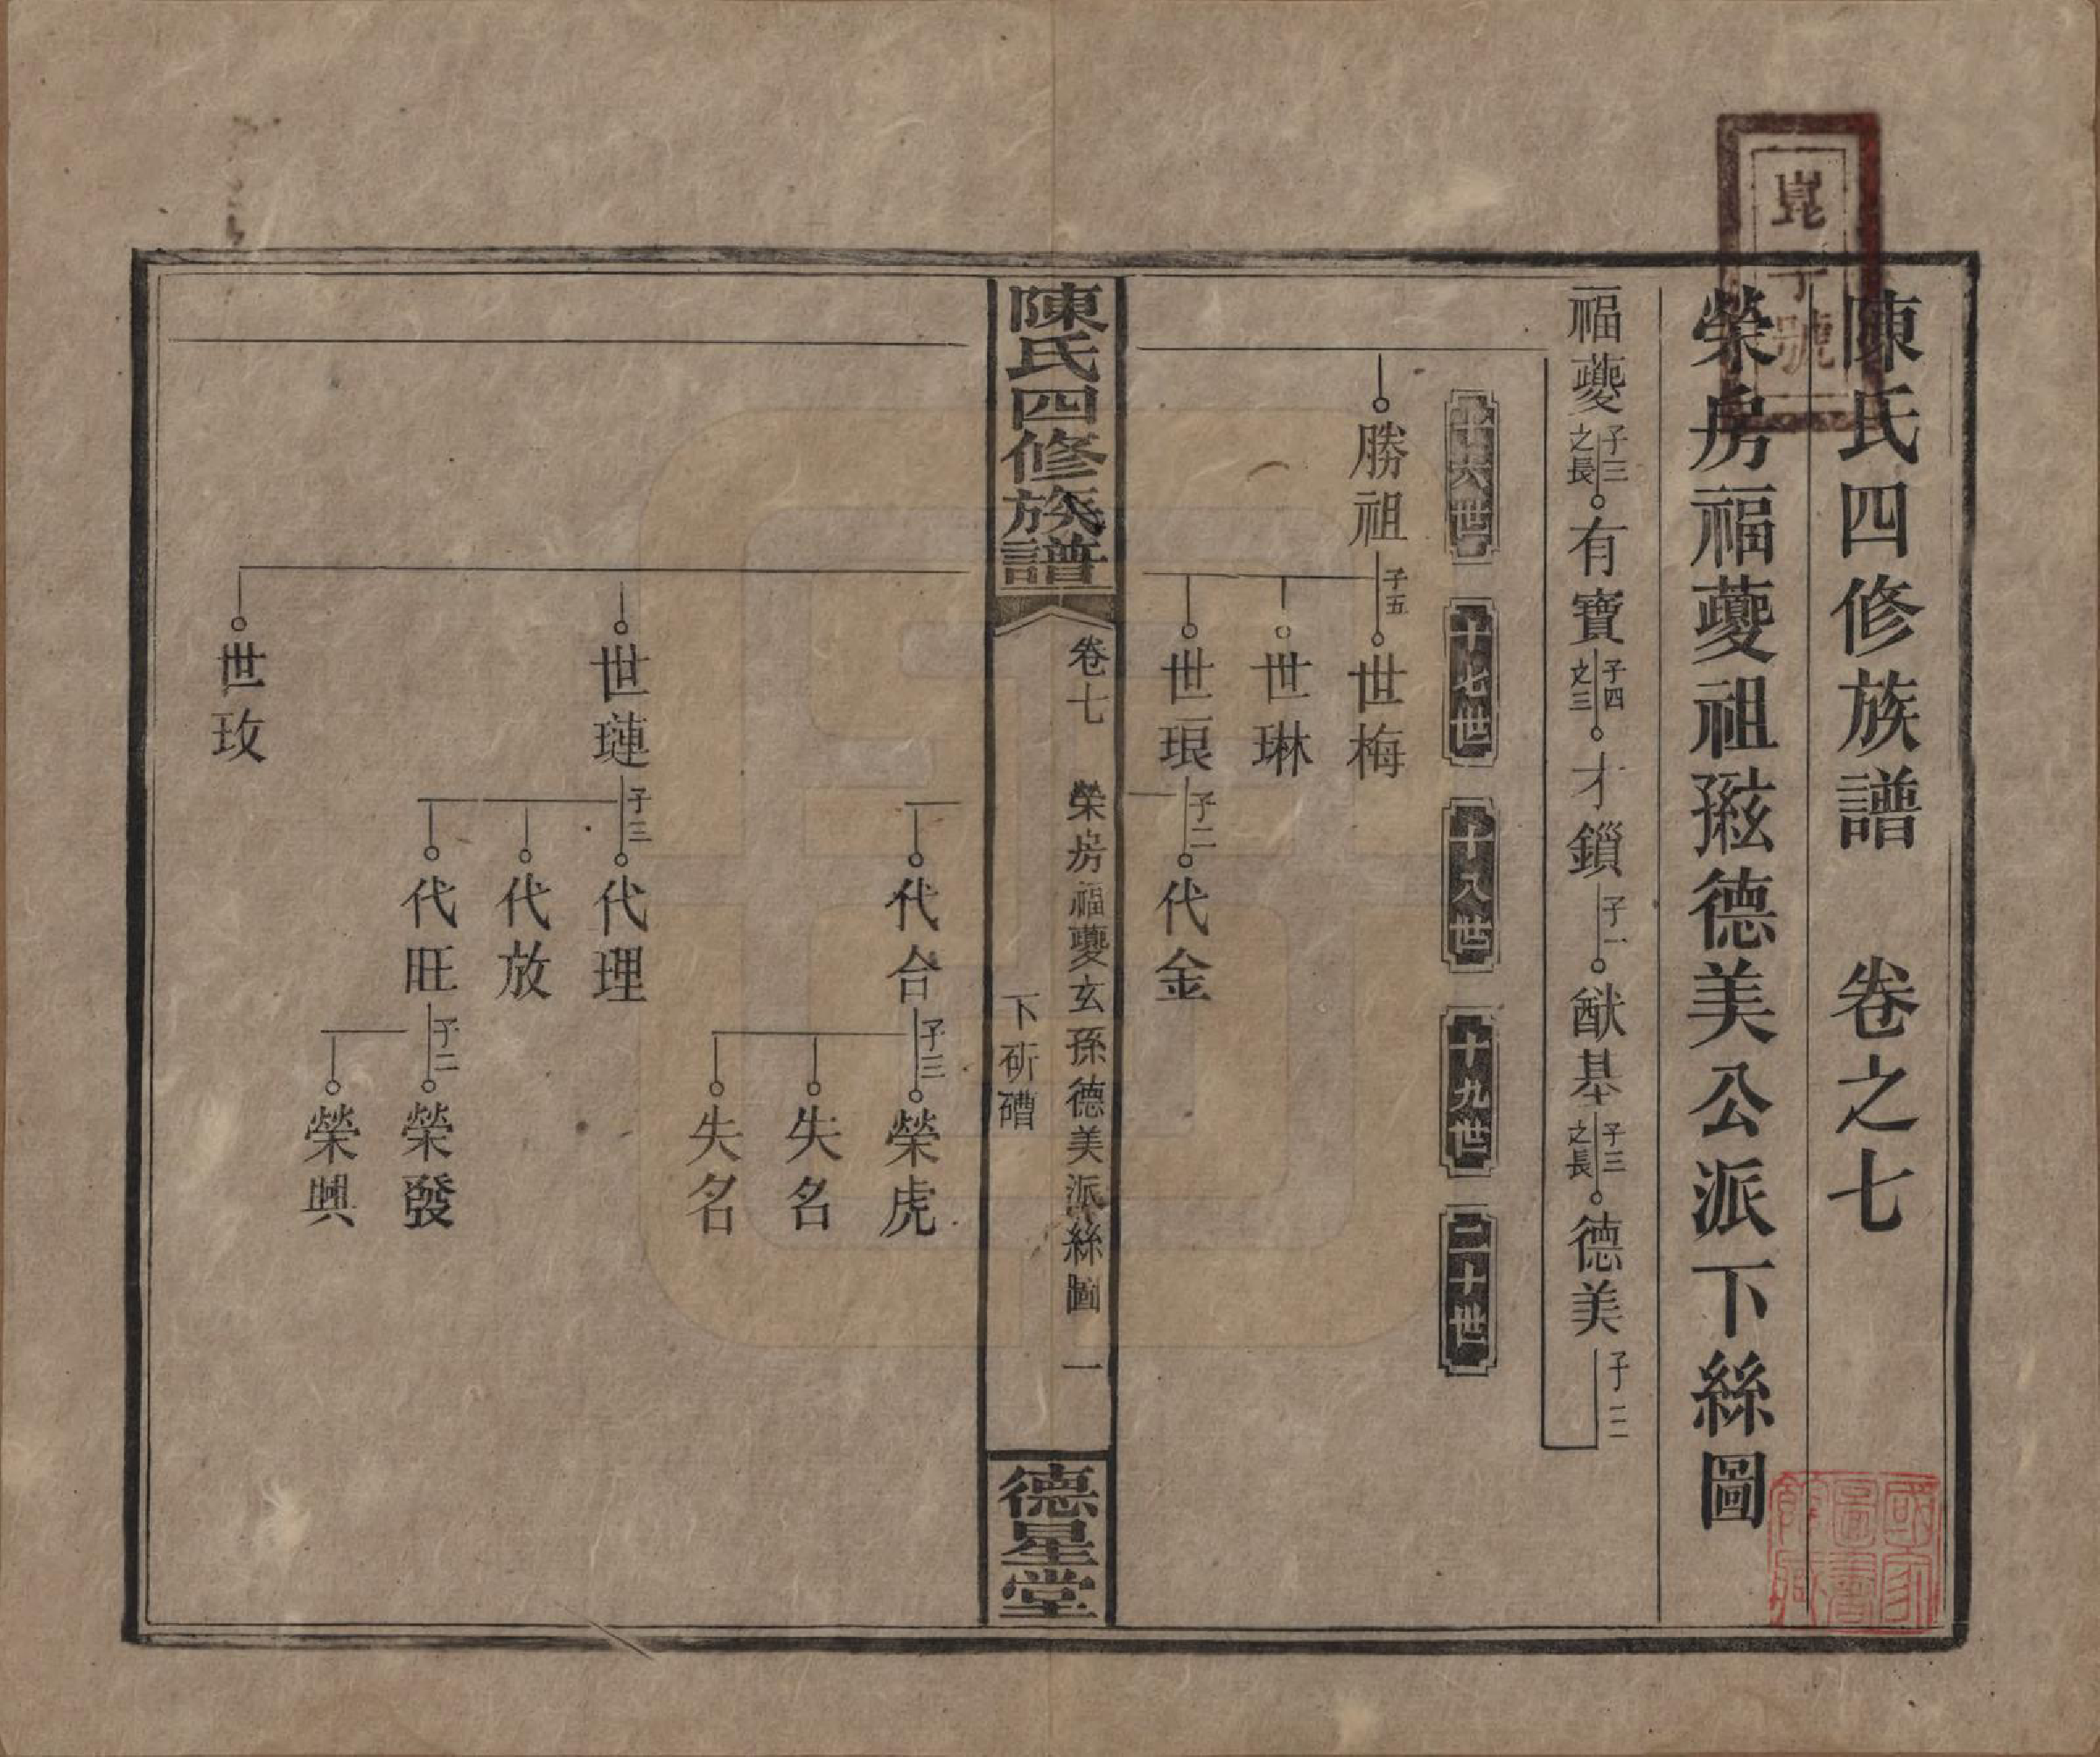 崑字號
陳氏四修族譜 卷之七
榮房福夔祖孫玆德美公派下絲圖
福夔 子三之長 有寶 子四之三 才鎻 子一 猷基 子三之長 德美 子二
十六世 十七世 十八世 十九世 二十世
勝祖 子五 世梅
世琳
世琅 子二 代金
陳氏四修族譜 卷七 榮房福夔玄孫德美派絲圖 一 德星堂
下斫磳
代合 子三 榮虎
失名
失名
世璉 子三 代理
代放
代旺 子二 榮發
榮興
世玫
國家圖書館藏